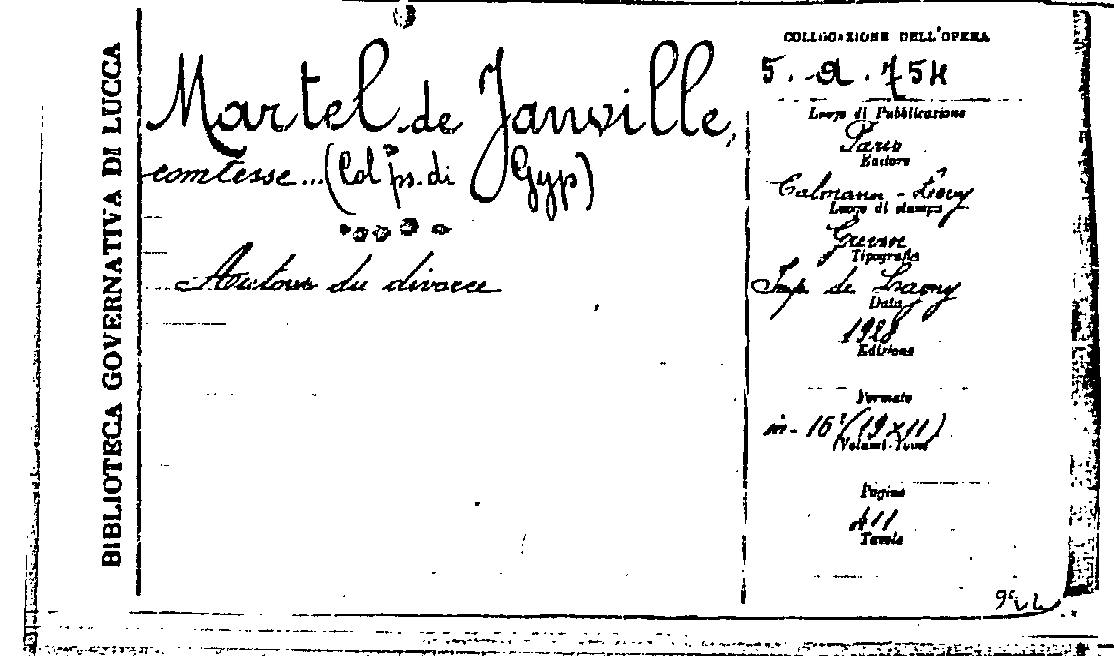 BIBLIOTECA GOVERNATIVA DI LUCCA
Martel de Janville,
comtesse... (Col ps. di Gyp)
Autour du divorce
COLLOCAZIONE DELL'OPERA
5. a. 754
Luogo di Pubblicazione
Paris
Editore
Calmann - Lévy
Luogo di stampa
Tipografia
Imp. de Lagny
Data
1928
Edizione
Formato
in - 16° (19 x 11)
(Volumi-Tomi)
Pagine
411
Tavole